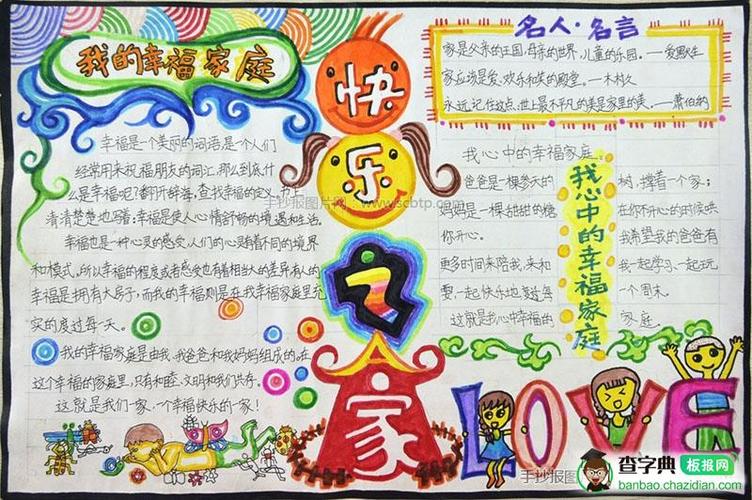 我的幸福家庭
幸福是一个美丽的词语,是一个人们
经常用来祝福朋友的词汇。那么到底什
么是幸福呢?翻开辞海,查找幸福的定义,书上
清清楚楚地写着:幸福是使人心情舒畅的境遇和生活。
幸福也是一种心灵的感受,人们的心灵有着不同的境界
和模式。所以幸福的程度或者感受也有着相当大的差异。有人的
幸福是拥有大房子,而我的幸福则是在我幸福家庭里充
实的度过每一天。
我的幸福家庭是由我、我爸爸和我妈妈组成的。在
这个幸福的家庭里,只有和睦、文明和我们共存。
这就是我们一家,一个幸福快乐的一家!
快
乐
之
家
名人·名言
家是父亲的王国,母亲的世界,儿童的乐园。——爱默生
家应该是爱、欢乐和笑的殿堂。——木村久一
永远记住这点:世上最不平凡的美是家里的美。——萧伯纳
我心中的幸福家庭
爸爸是一棵参天的树,撑着一个家;
妈妈是一棵甜甜的糖,在你不开心的时候哄
你开心。我希望我的爸爸有
更多时间来陪我,来和我一起学习,一起玩
耍,一起快乐地度过每一个周末。
这就是我心中幸福的家庭。
我心中的幸福家庭
LOVE
手抄报图片网:www.scbtp.com
手抄报图
查字典 板报网
banbao.chazidian.com